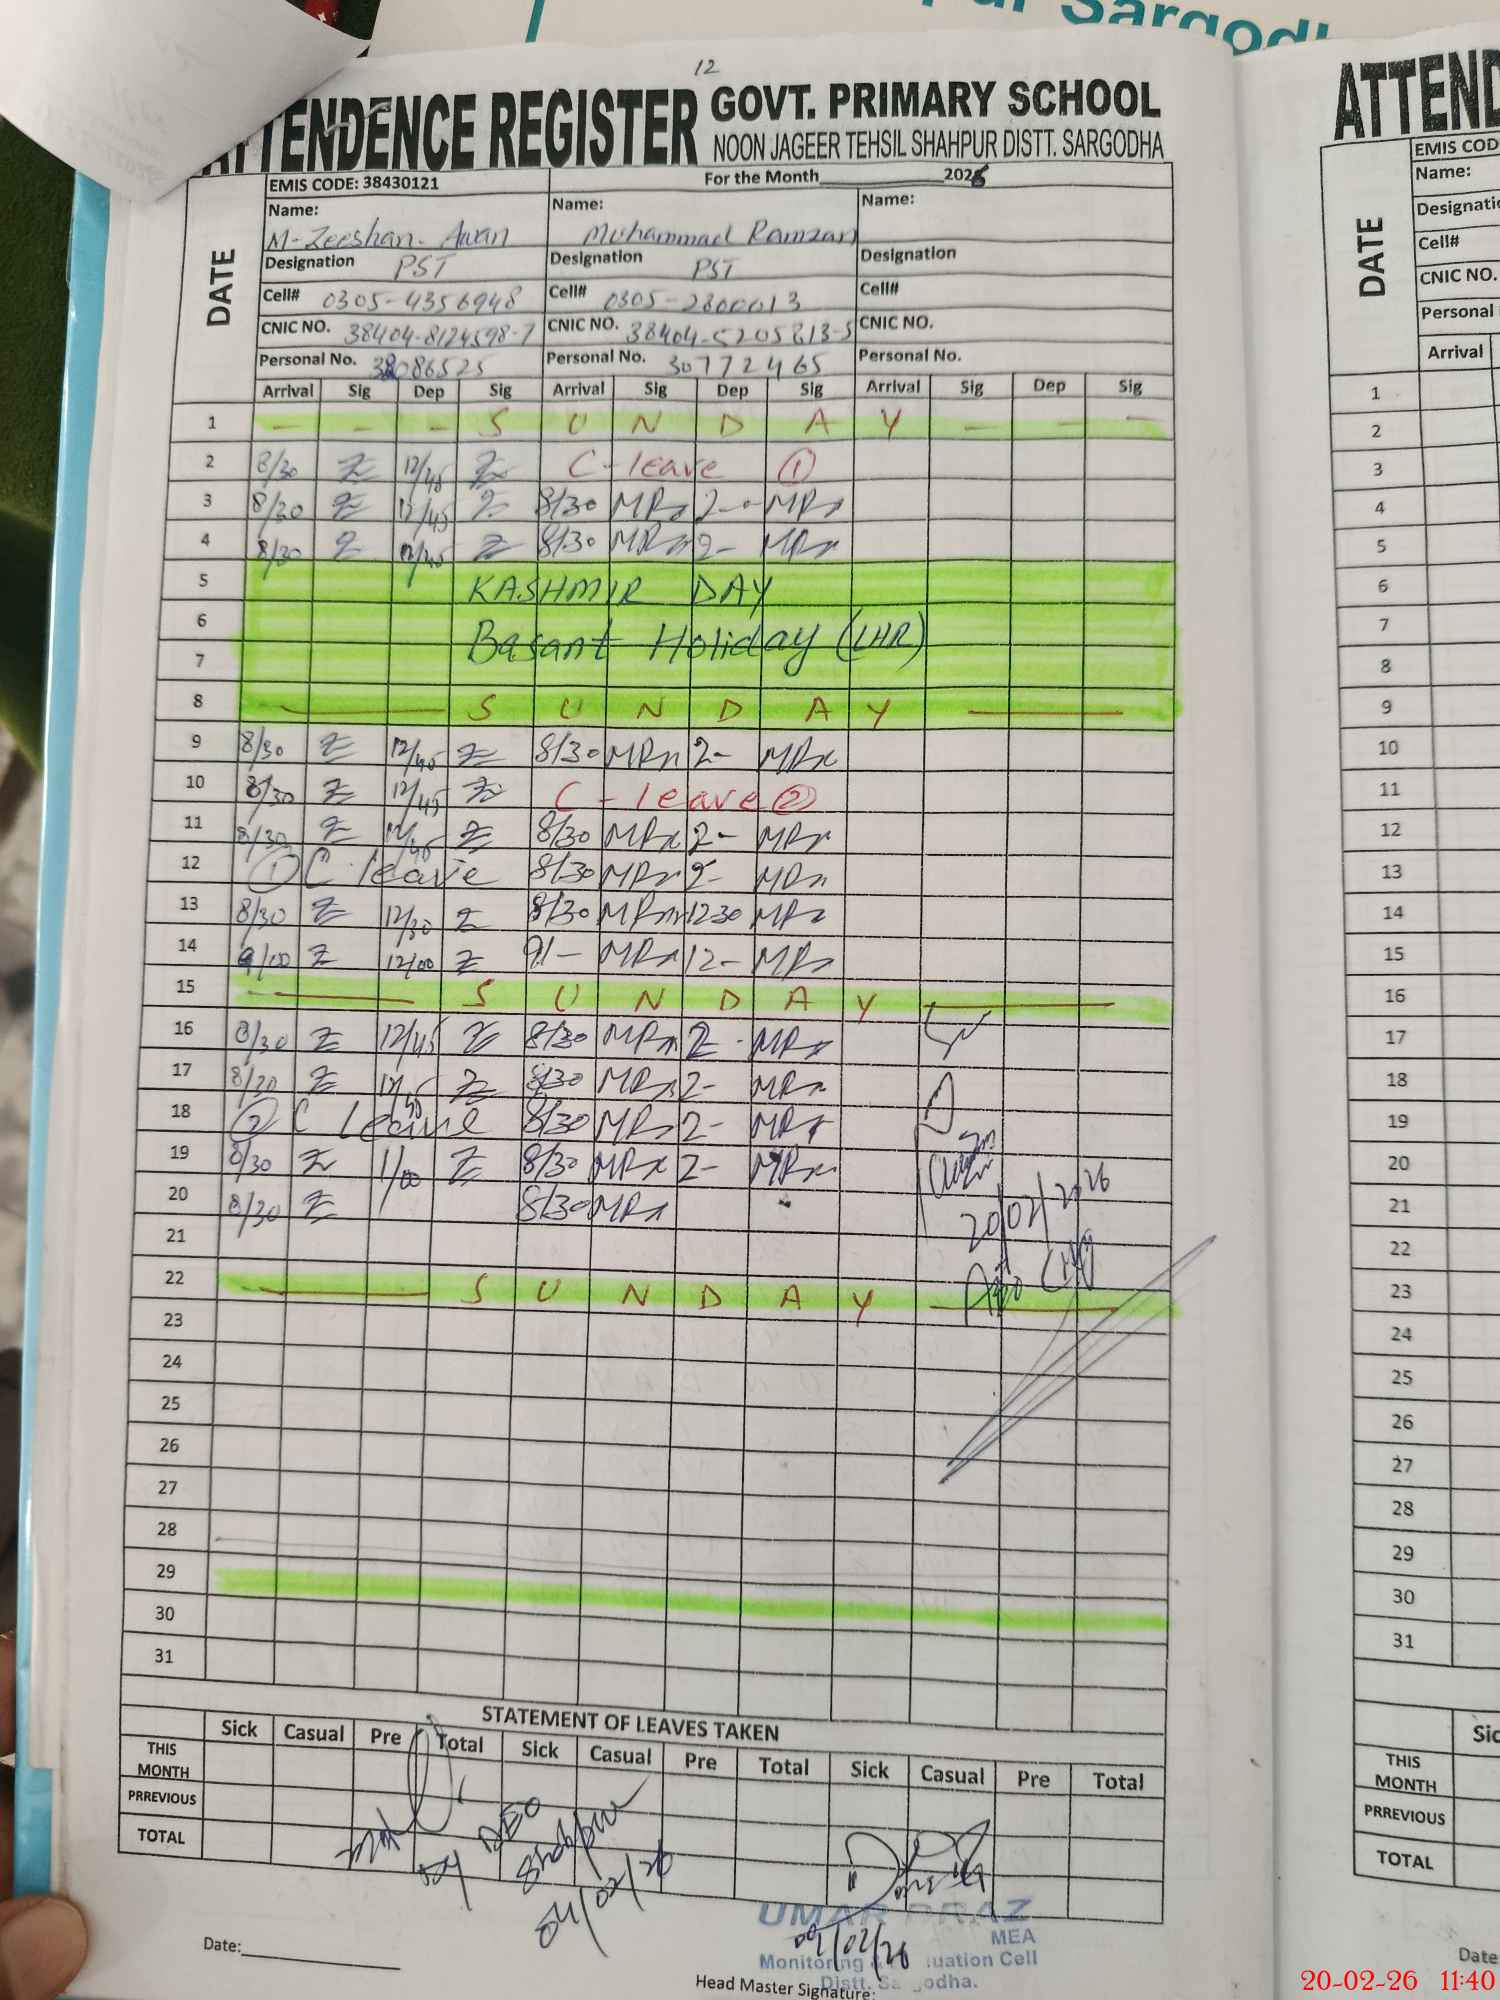 pur Sargodh
12
ATTENDENCE REGISTER GOVT. PRIMARY SCHOOL
NOON JAGEER TEHSIL SHAHPUR DISTT. SARGODHA
EMIS CODE: 38430121 For the Month 2026
DATE
Name: Name: Name:
M-Zeeshan. Awan Muhammad Ramzan
Designation PST Designation PST Designation
Cell# 0305-4356948 Cell# 0305-2800013 Cell#
CNIC NO. 38404-8124598-7 CNIC NO. 38404-5205813-5 CNIC NO.
Personal No. 32086525 Personal No. 30772465 Personal No.
Arrival Sig Dep Sig Arrival Sig Dep Sig Arrival Sig Dep Sig
1 - - - S U N D A Y - - -
2 8/30 12/45 C-leave ①
3 8/30 12/45 8/30 MRz 2- MRz
4 8/30 12/45 8/30 MRz 2- MRz
5 KASHMIR DAY
6 Basant Holiday (LHR)
7
8 S U N D A Y
9 8/30 12/45 8/30 MRz 2- MRz
10 8/30 12/45 C-leave ②
11 8/30 12/45 8/30 MRz 2- MRz
12 ① C leave 8/30 MRz 2- MRz
13 8/30 12/30 8/30 MRz 1230 MRz
14 9/00 12/00 9/- MRz 12- MRz
15 S U N D A Y
16 8/30 12/45 8/30 MRz 2- MRz
17 8/30 12/45 8/30 MRz 2- MRz
18 ② C leave 8/30 MRz 2- MRz
19 8/30 1/00 8/30 MRz 2- MRz
20 8/30 8/30 MRz
20/02/2026
21
22 S U N D A Y
23
24
25
26
27
28
29
30
31
STATEMENT OF LEAVES TAKEN
Sick Casual Pre Total Sick Casual Pre Total Sick Casual Pre Total
THIS MONTH
PRREVIOUS
TOTAL
Dy DEO
Shahpur
04/02/26
UMAR DRAZ
MEA
09/02/26
Monitoring & Evaluation Cell
Distt. Sargodha.
Date:
Head Master Signature:
ATTEND
EMIS COD
DATE
Name:
Designati
Cell#
CNIC NO.
Personal
Arrival
1
2
3
4
5
6
7
8
9
10
11
12
13
14
15
16
17
18
19
20
21
22
23
24
25
26
27
28
29
30
31
Sic
THIS MONTH
PRREVIOUS
TOTAL
Date
20-02-26 11:40